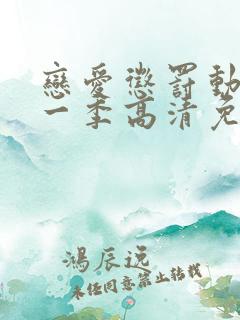 戀愛懲罰動
一季高清免
鴻辰远
未经同意禁止转载